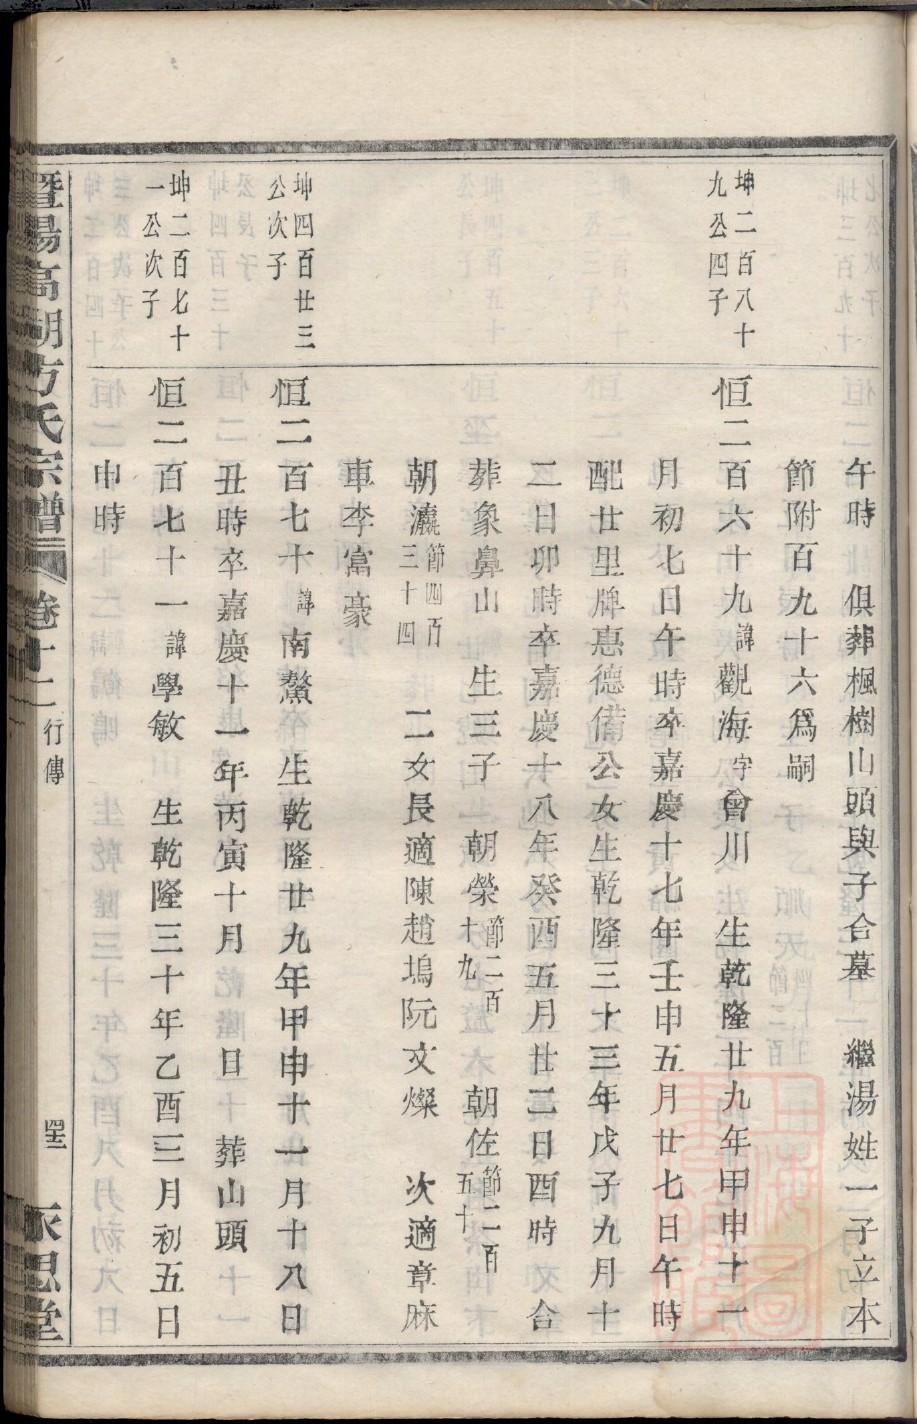 午時　俱葬楓樹山頭與子合墓　繼湯姓一子立本
節附百九十六爲嗣
坤二百八十
九公四子
恒二百六十九諱觀海字會川　生乾隆廿九年甲申十一
月初七日午時卒嘉慶十七年壬申五月廿七日午時
配廿里牌惠德備公女生乾隆三十三年戊子九月十
二日卯時卒嘉慶十八年癸酉五月廿二日酉時　合
葬象鼻山　生三子　朝榮節二百十九　朝佐節二百五十
朝瀛節四百三十四　二女長適陳趙塢阮文燦　次適章麻
車李富豪
坤四百廿三
公次子
恒二百七十諱南鰲　生乾隆廿九年甲申十一月十八日
丑時卒嘉慶十一年丙寅十月　日　葬山頭
坤二百七十
一公次子
恒二百七十一諱學敏　生乾隆三十年乙酉三月初五日
申時
暨陽高湖方氏宗譜　卷十二　行傳　永思堂